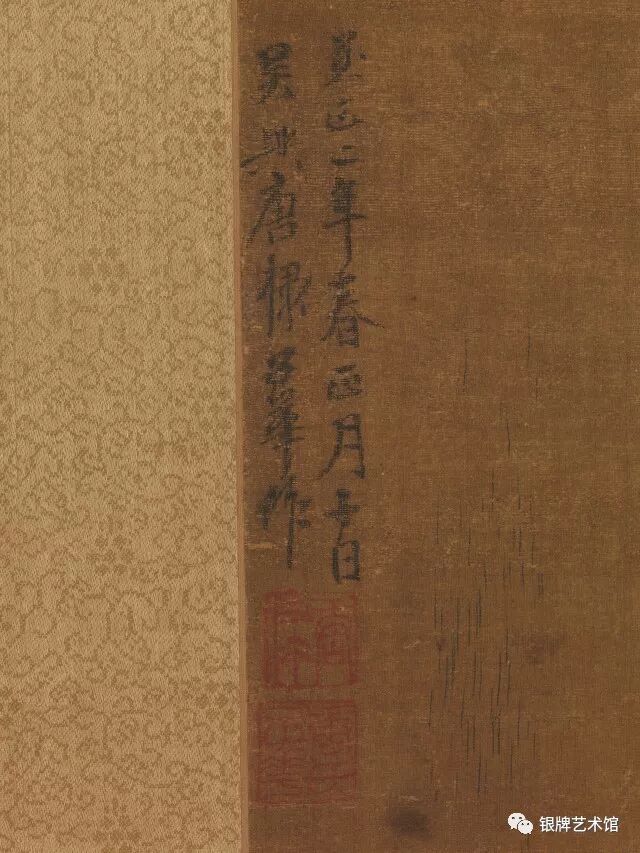 至正二年春正月十日
吳興唐棣子華作
银牌艺术馆